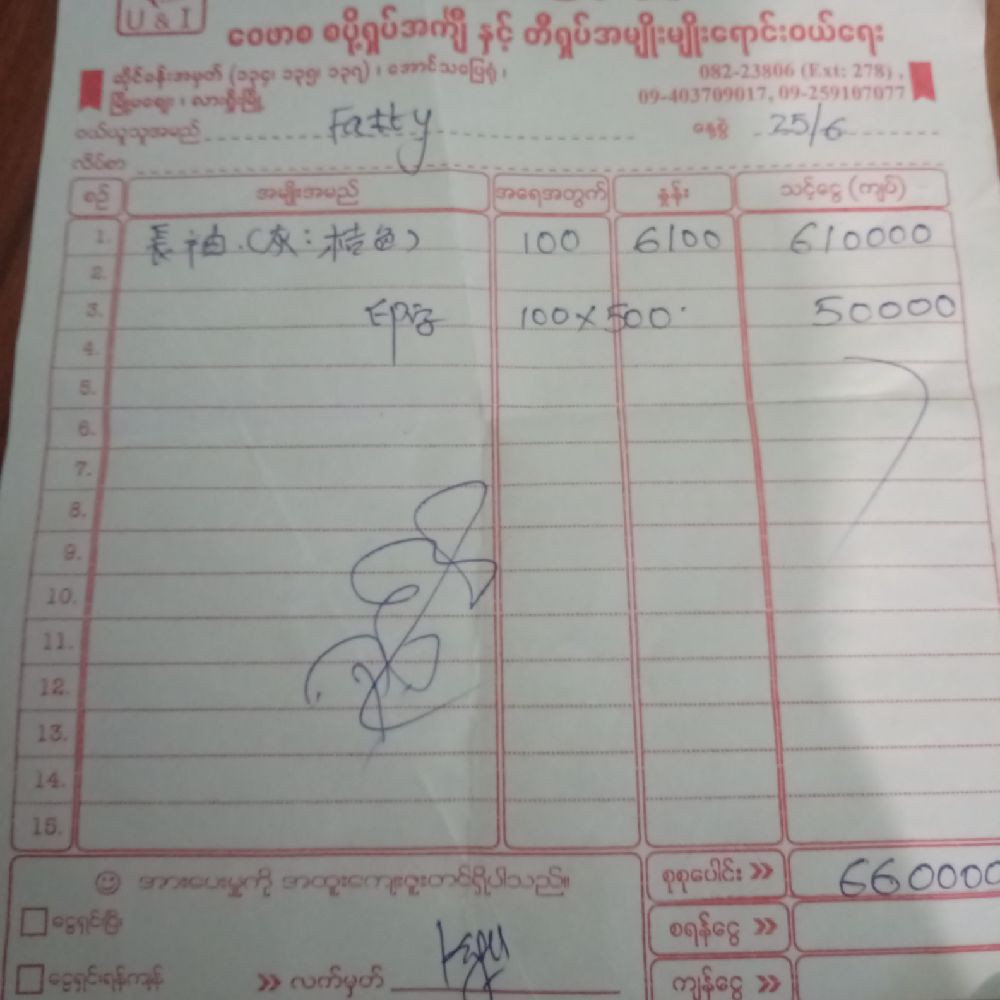 U & I
ဝေဟာစ စပို့ရှပ်အင်္ကျီ နှင့် တီရှပ်အမျိုးမျိုးရောင်းဝယ်ရေး
ဆိုင်ခန်းအမှတ် (၁၃၄၊ ၁၃၅၊ ၁၃၇) ၊ အောင်သပြေရုံ ၊
082-23806 (Ext: 278) ,
မြို့မဈေး ၊ လားရှိုးမြို့
09-403709017, 09-259107077
ဝယ်ယူသူအမည် Fatty နေ့စွဲ 25/6
လိပ်စာ
စဉ် အမျိုးအမည် အရေအတွက် နှုန်း သင့်ငွေ (ကျပ်)
1. 長袖 (灰:桔色) 100 6100 610000
2.
3. 100 x 500 50000
4.
5.
6.
7.
8.
9.
10.
11.
12.
13.
14.
15.
အားပေးမှုကို အထူးကျေးဇူးတင်ရှိပါသည်။ စုစုပေါင်း >> 660000
ငွေရှင်းပြီး စရန်ငွေ >>
ငွေရှင်းရန်ကျန် >> လက်မှတ် ကျန်ငွေ >>